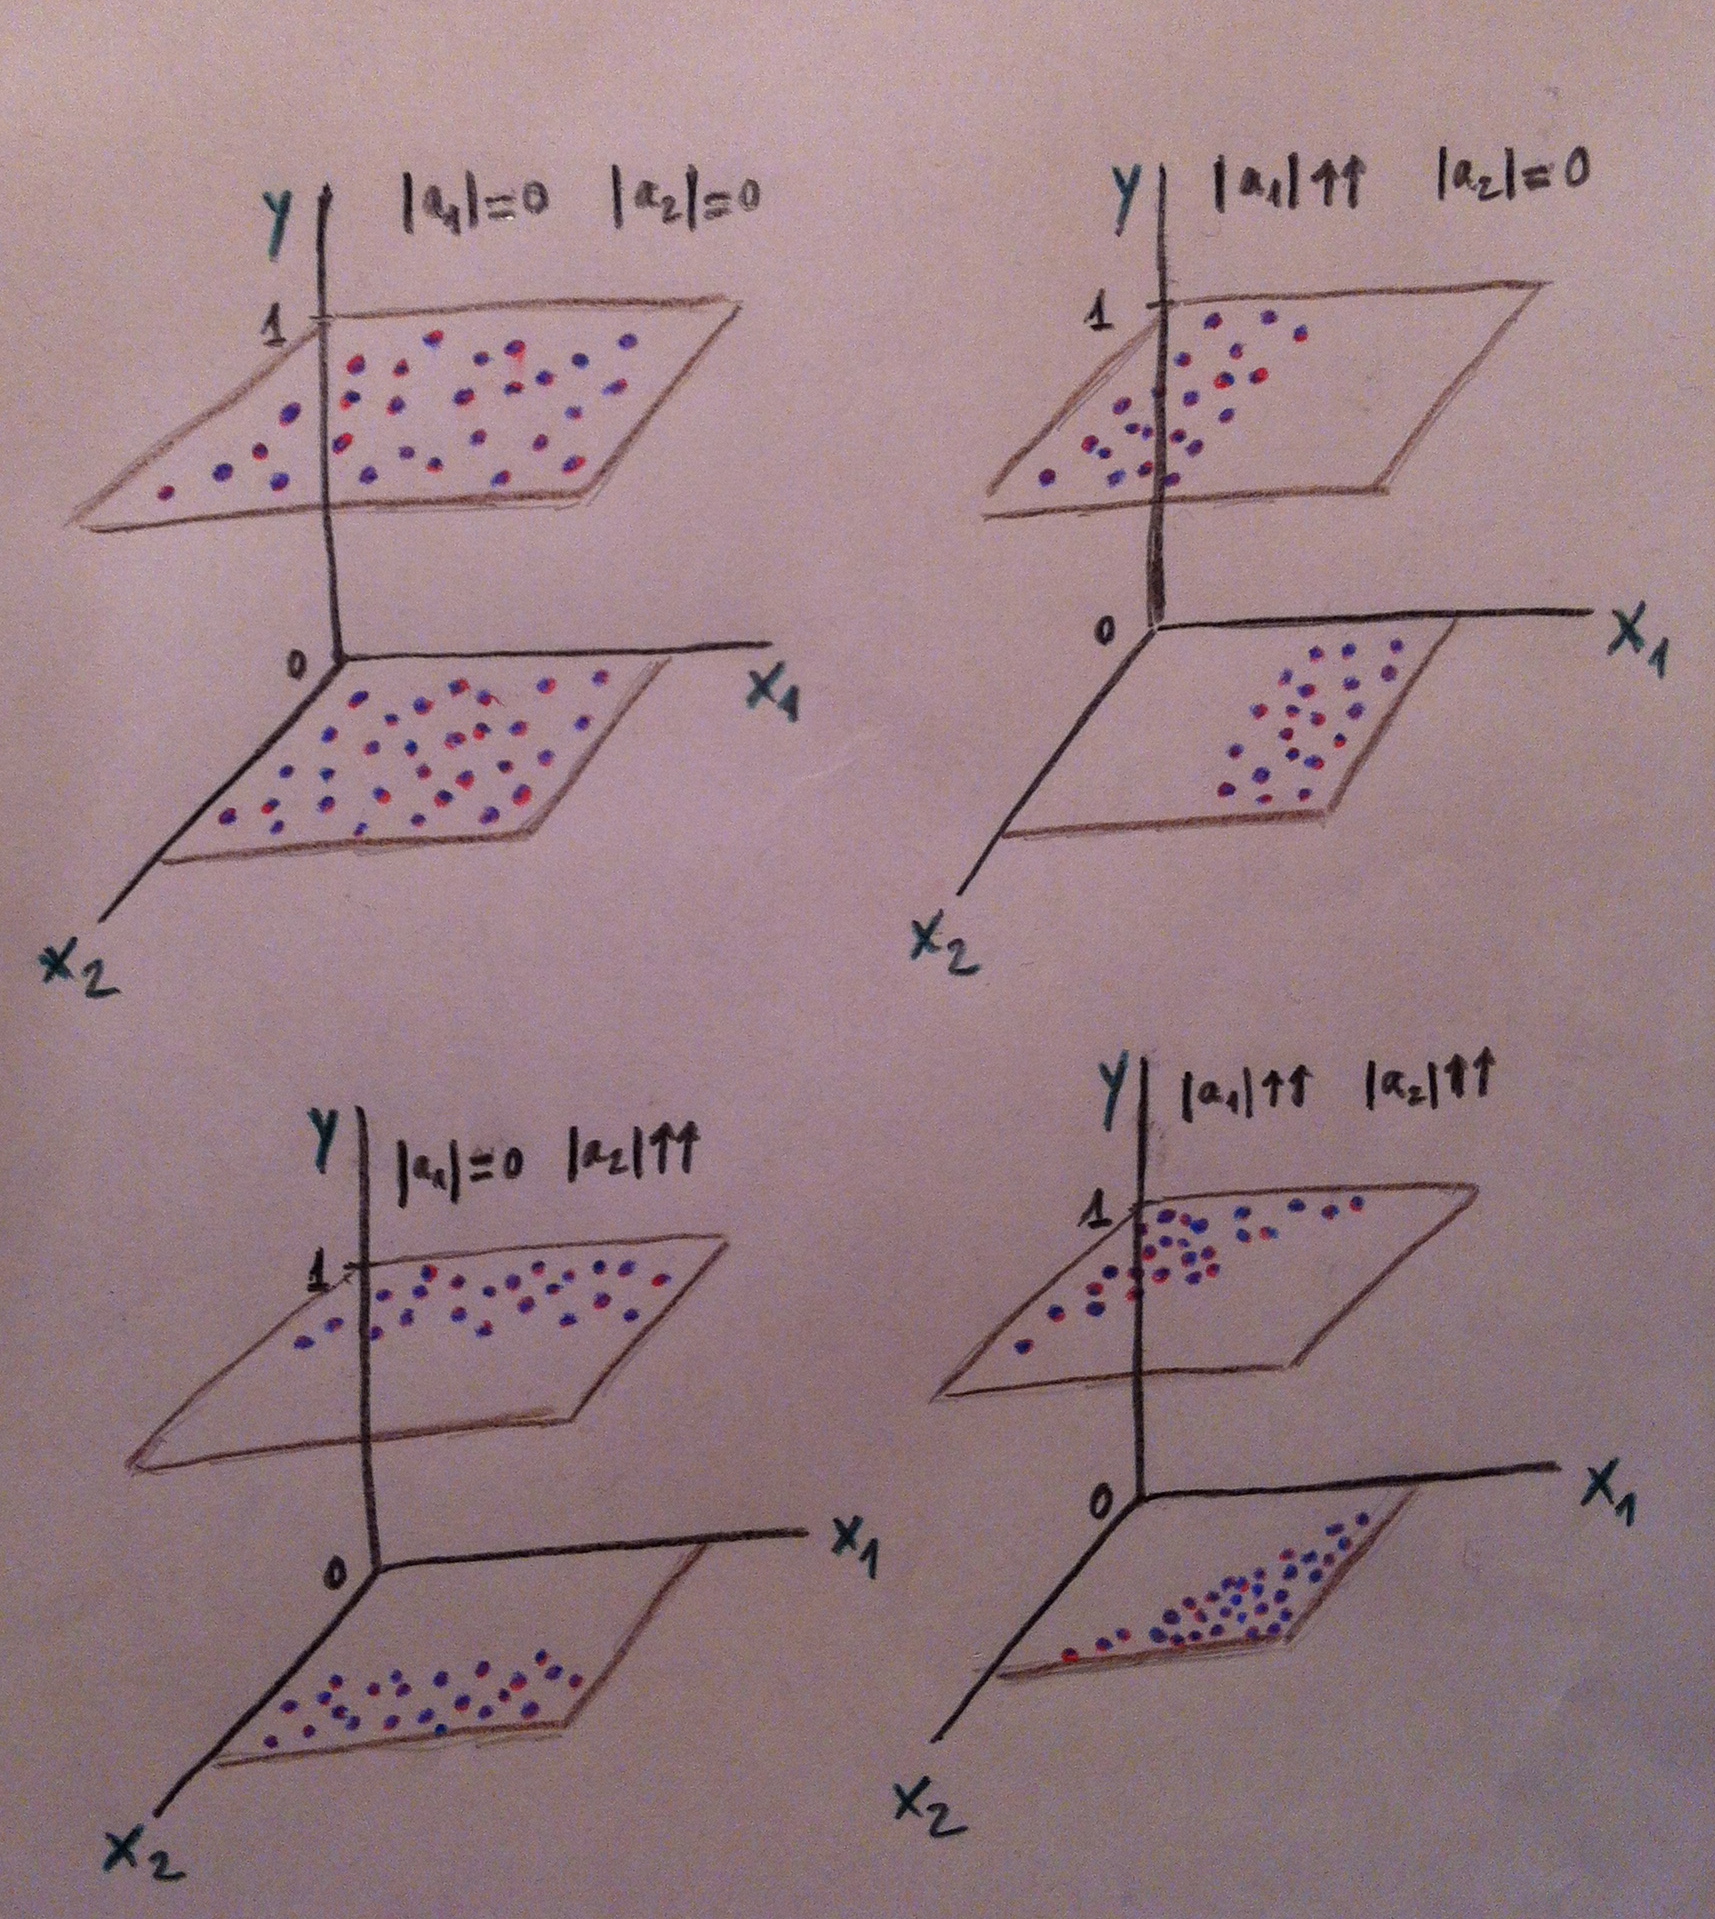 Y |a₁|=0 |a₂|=0
1
0
X₁
X₂
Y |a₁|↑↑ |a₂|=0
1
0
X₁
X₂
Y |a₁|=0 |a₂|↑↑
1
0
X₁
X₂
Y |a₁|↑↑ |a₂|↑↑
1
0
X₁
X₂